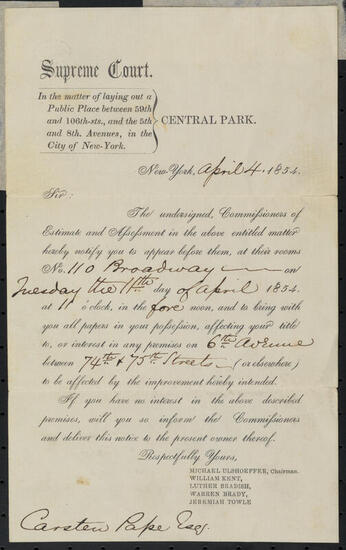 Supreme Court.
In the matter of laying out a
Public Place between 59th
and 106th-sts., and the 5th
and 8th. Avenues, in the
City of New-York.
CENTRAL PARK.
New-York, April 4. 1854.
Sir:
The undersigned, Commissioners of
Estimate and Assessment in the above entitled matter
hereby notify you to appear before them, at their rooms
No. 110 Broadway on
Tuesday the 11th day of April 1854.
at 11 o'clock, in the fore noon, and to bring with
you all papers in your possession, affecting your title
to, or interest in any premises on 6th Avenue
between 74th & 75th Streets (or elsewhere)
to be affected by the improvement hereby intended.
If you have no interest in the above described
premises, will you so inform the Commissioners
and deliver this notice to the present owner thereof.
Respectfully Yours,
MICHAEL ULSHOEFFER, Chairman.
WILLIAM KENT,
LUTHER BRADISH,
WARREN BRADY,
JEREMIAH TOWLE
Carsten Pape Esq.